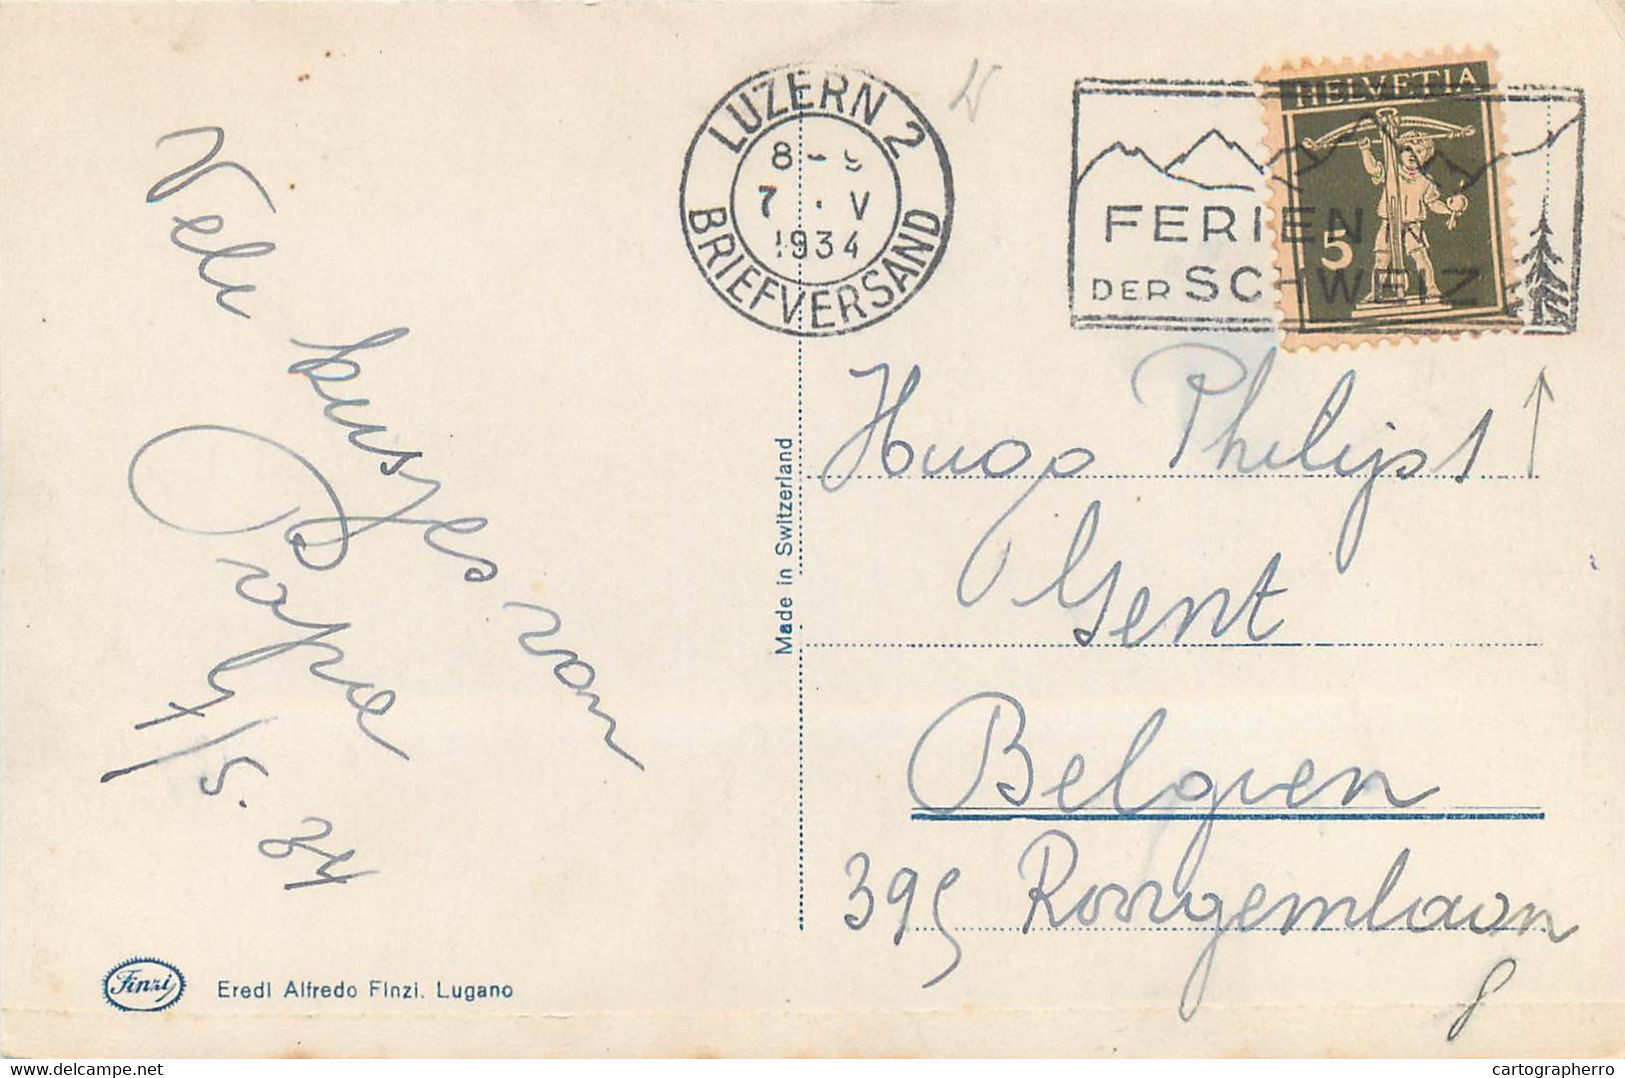 Vele kusjes van
Papa
7/5.34
Finzi
Eredi Alfredo Finzi. Lugano
Made in Switzerland
LUZERN 2
8-9
7. V
1934
BRIEFVERSAND
FERIEN IN
DER SCHWEIZ
HELVETIA
5
Hugo Philips
Gent
Belgien
395
delcampe.net
cartographerro